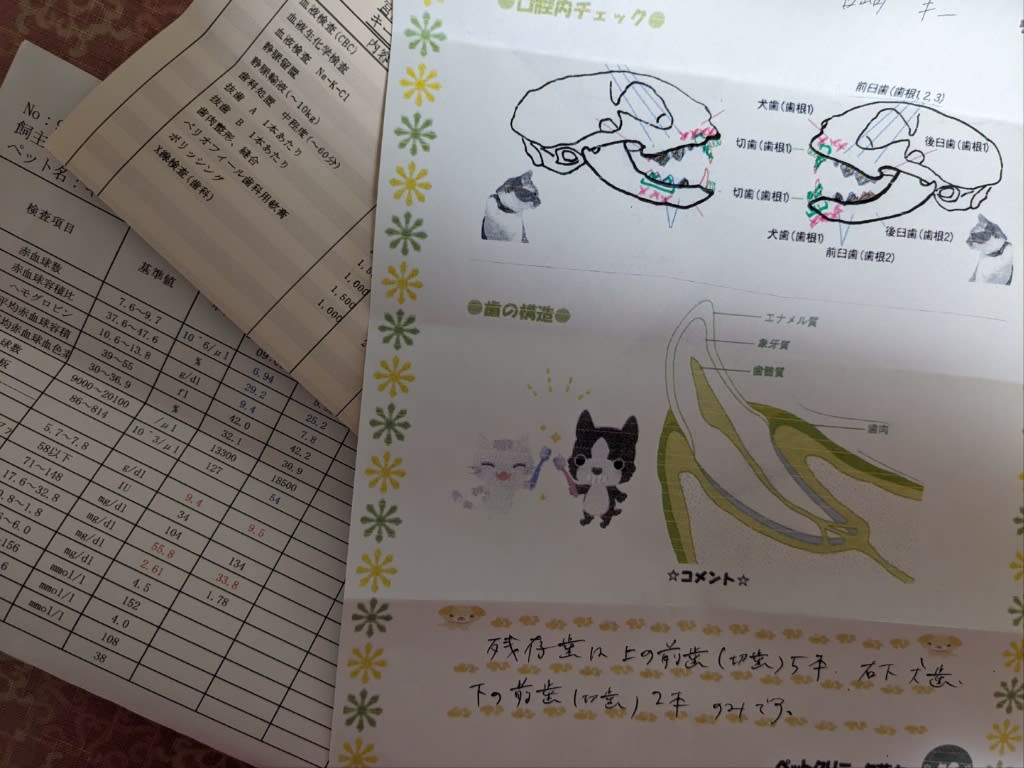 口腔内チェック
犬歯(歯根1)
切歯(歯根1)
切歯(歯根1)
犬歯(歯根1)
前臼歯(歯根1,2,3)
後臼歯(歯根1)
後臼歯(歯根2)
前臼歯(歯根2)
歯の構造
エナメル質
象牙質
歯髄質
歯肉
☆コメント☆
残存歯は上の前歯(切歯)5本、右下犬歯、
下の前歯(切歯)2本のみです。
内容
血液検査(CBC)
血液生化学検査
血液検査 Na-K-Cl
静脈留置
静脈輸液(~10kg)
歯科処置 中程度(~60分)
抜歯 A 1本あたり
抜歯 B 1本あたり
歯肉整形、縫合
ペリオフィール歯科用軟膏
ポリッシング
X線検査(歯科)
1,000
1,500
1,000
No:
飼主
ペット名:
検査項目 基準値
赤血球数 7.6~9.7 10^6/μl 6.94
赤血球容積比 37.6~47.6 % 29.2 25.2
ヘモグロビン 10.6~13.8 g/dl 9.4 7.8
平均赤血球容積 39~55 fl 42.0 42.2
均赤血球血色素 30~36.9 % 32.1 30.9
球数 9000~20100 /μl 13300 18500
板 86~814 10^3/μl 127 54
5.7~7.8 g/dl 9.4 9.5
58以下 IU 34 134
71~148 mg/dl 104 33.8
17.6~32.8 mg/dl 55.8 1.78
0.8~1.8 mg/dl 2.61
mmol/l 4.5
156 mmol/l 152
mmol/l 4.0
108
38